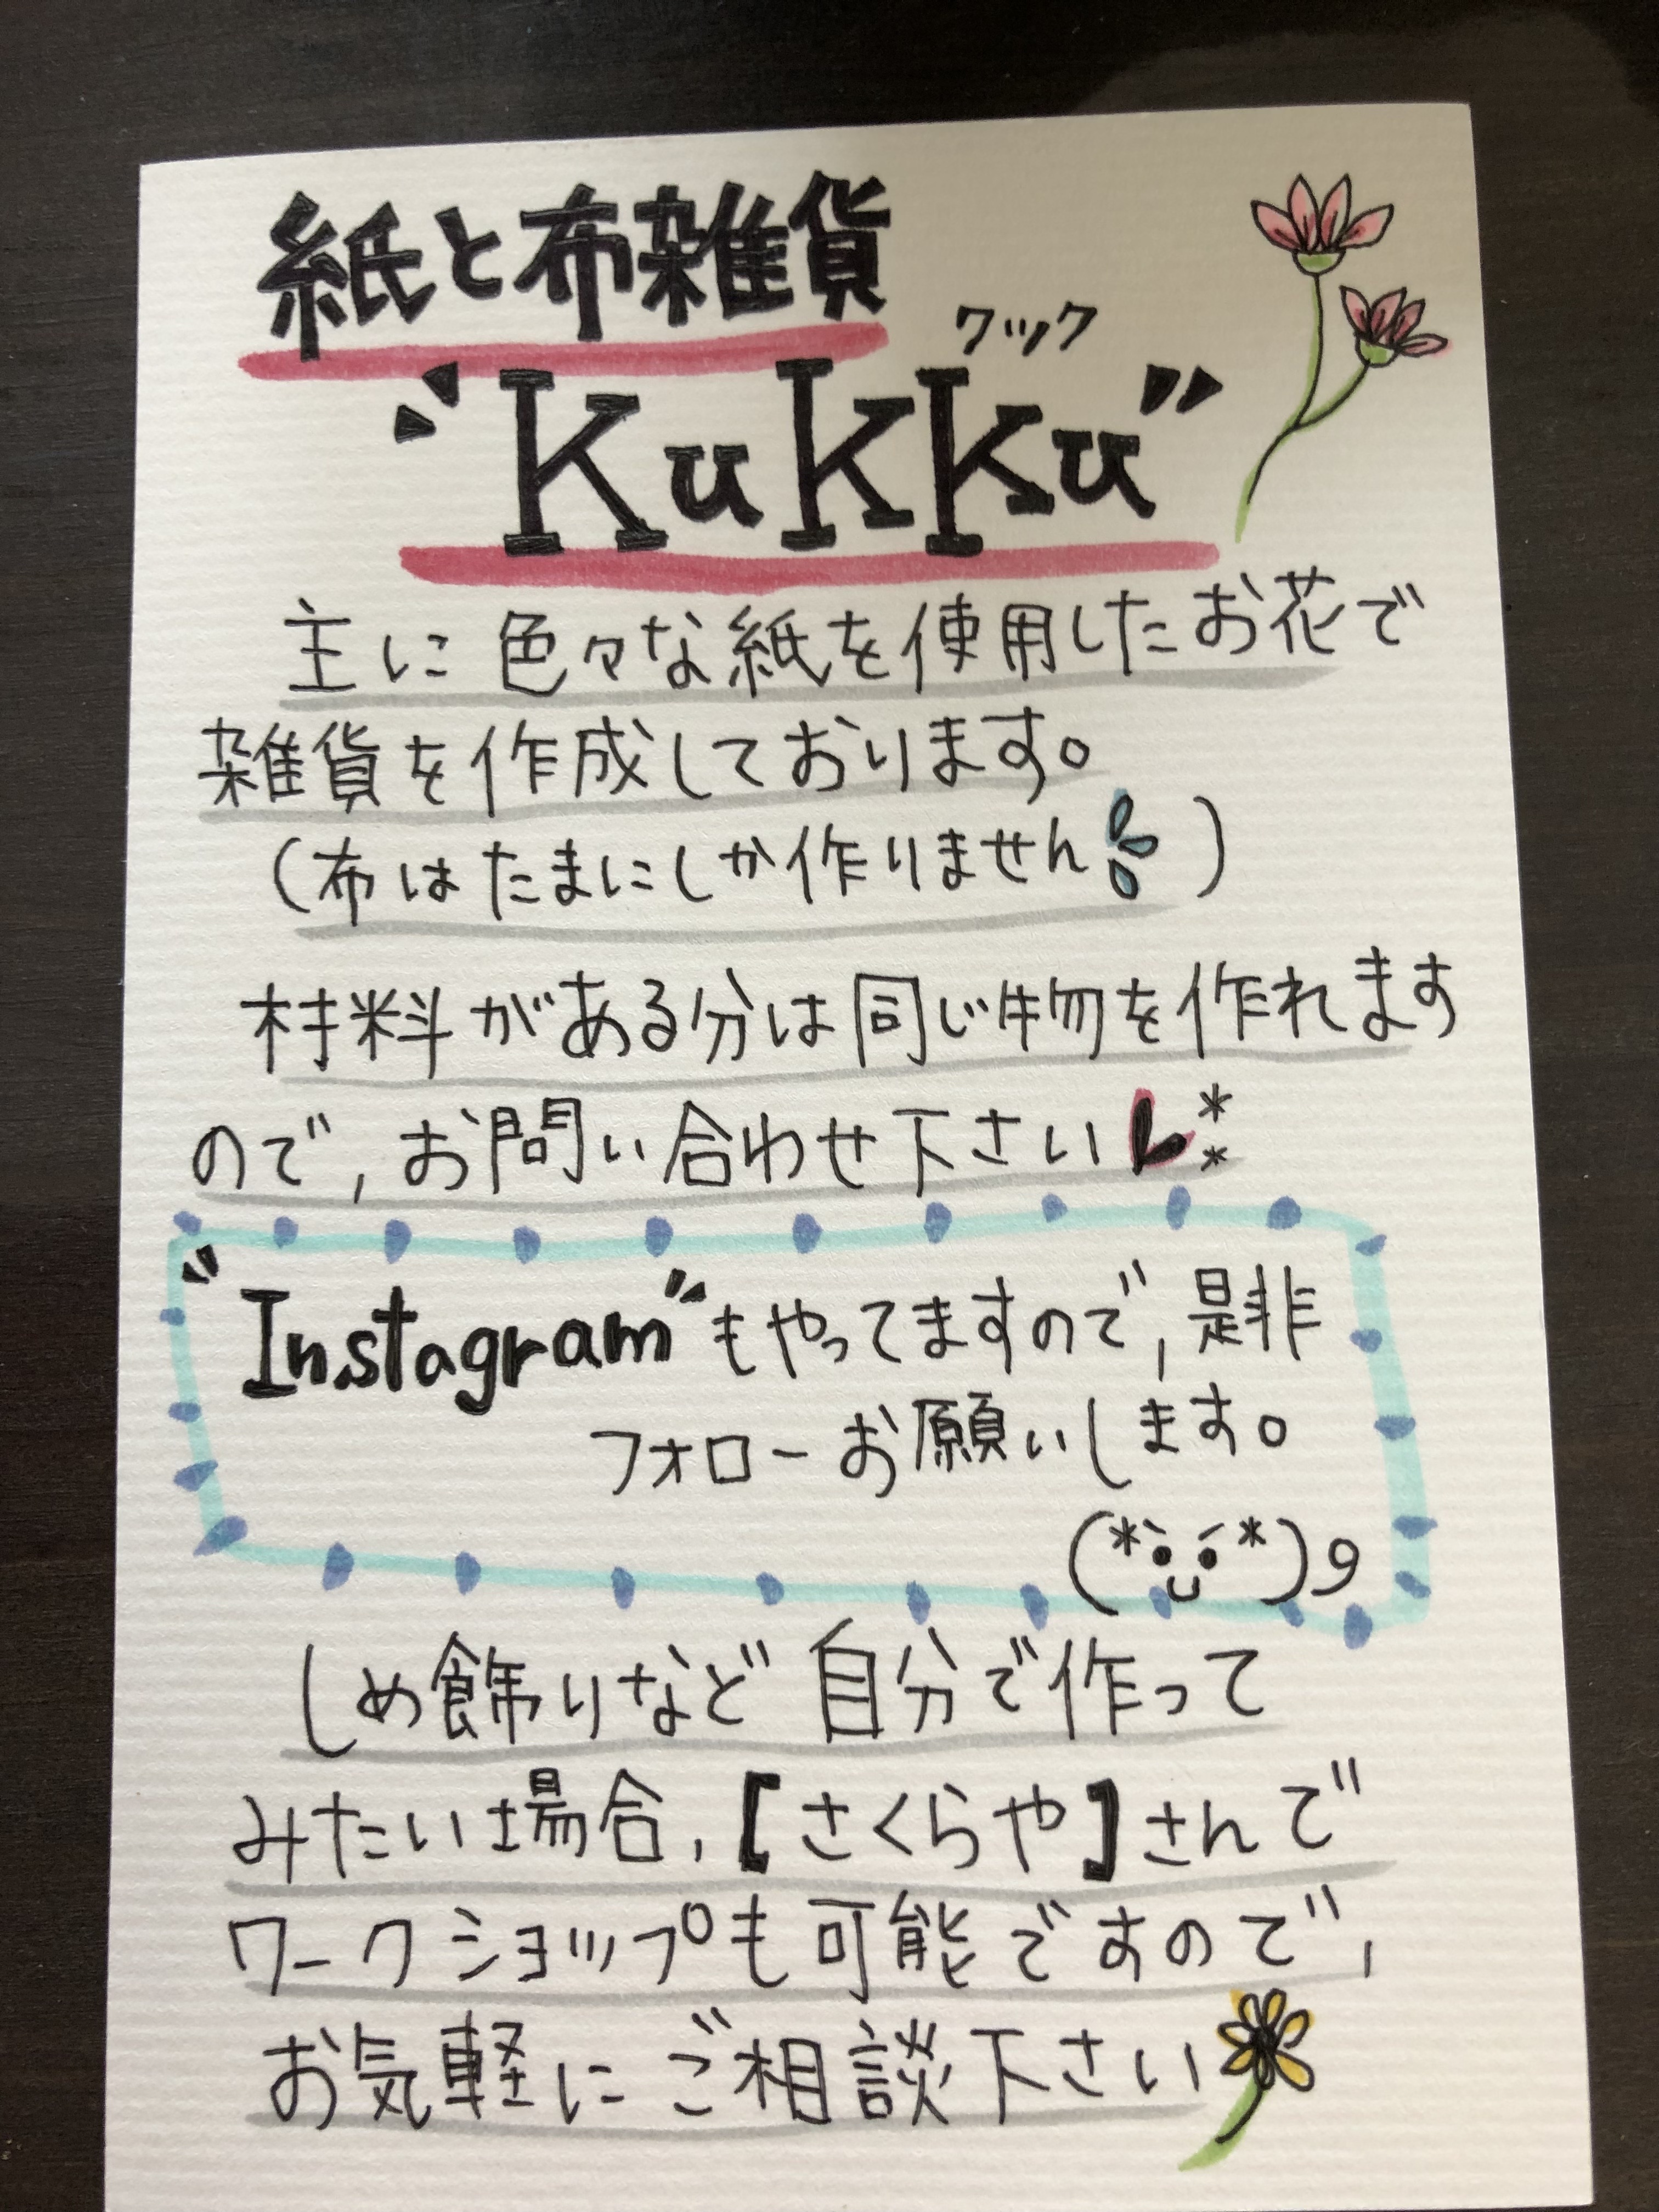 紙と布雑貨
クック
"Kukku"
主に色々な紙を使用したお花で
雑貨を作成しております。
(布はたまにしか作りません)
材料がある分は同じ物を作れます
ので、お問い合わせ下さい**
"Instagram"もやってますので、是非
フォローお願いします。
(*•̀ᴗ•́*)و
しめ飾りなど自分で作って
みたい場合、【さくらや】さんで
ワークショップも可能ですので、
お気軽にご相談下さい